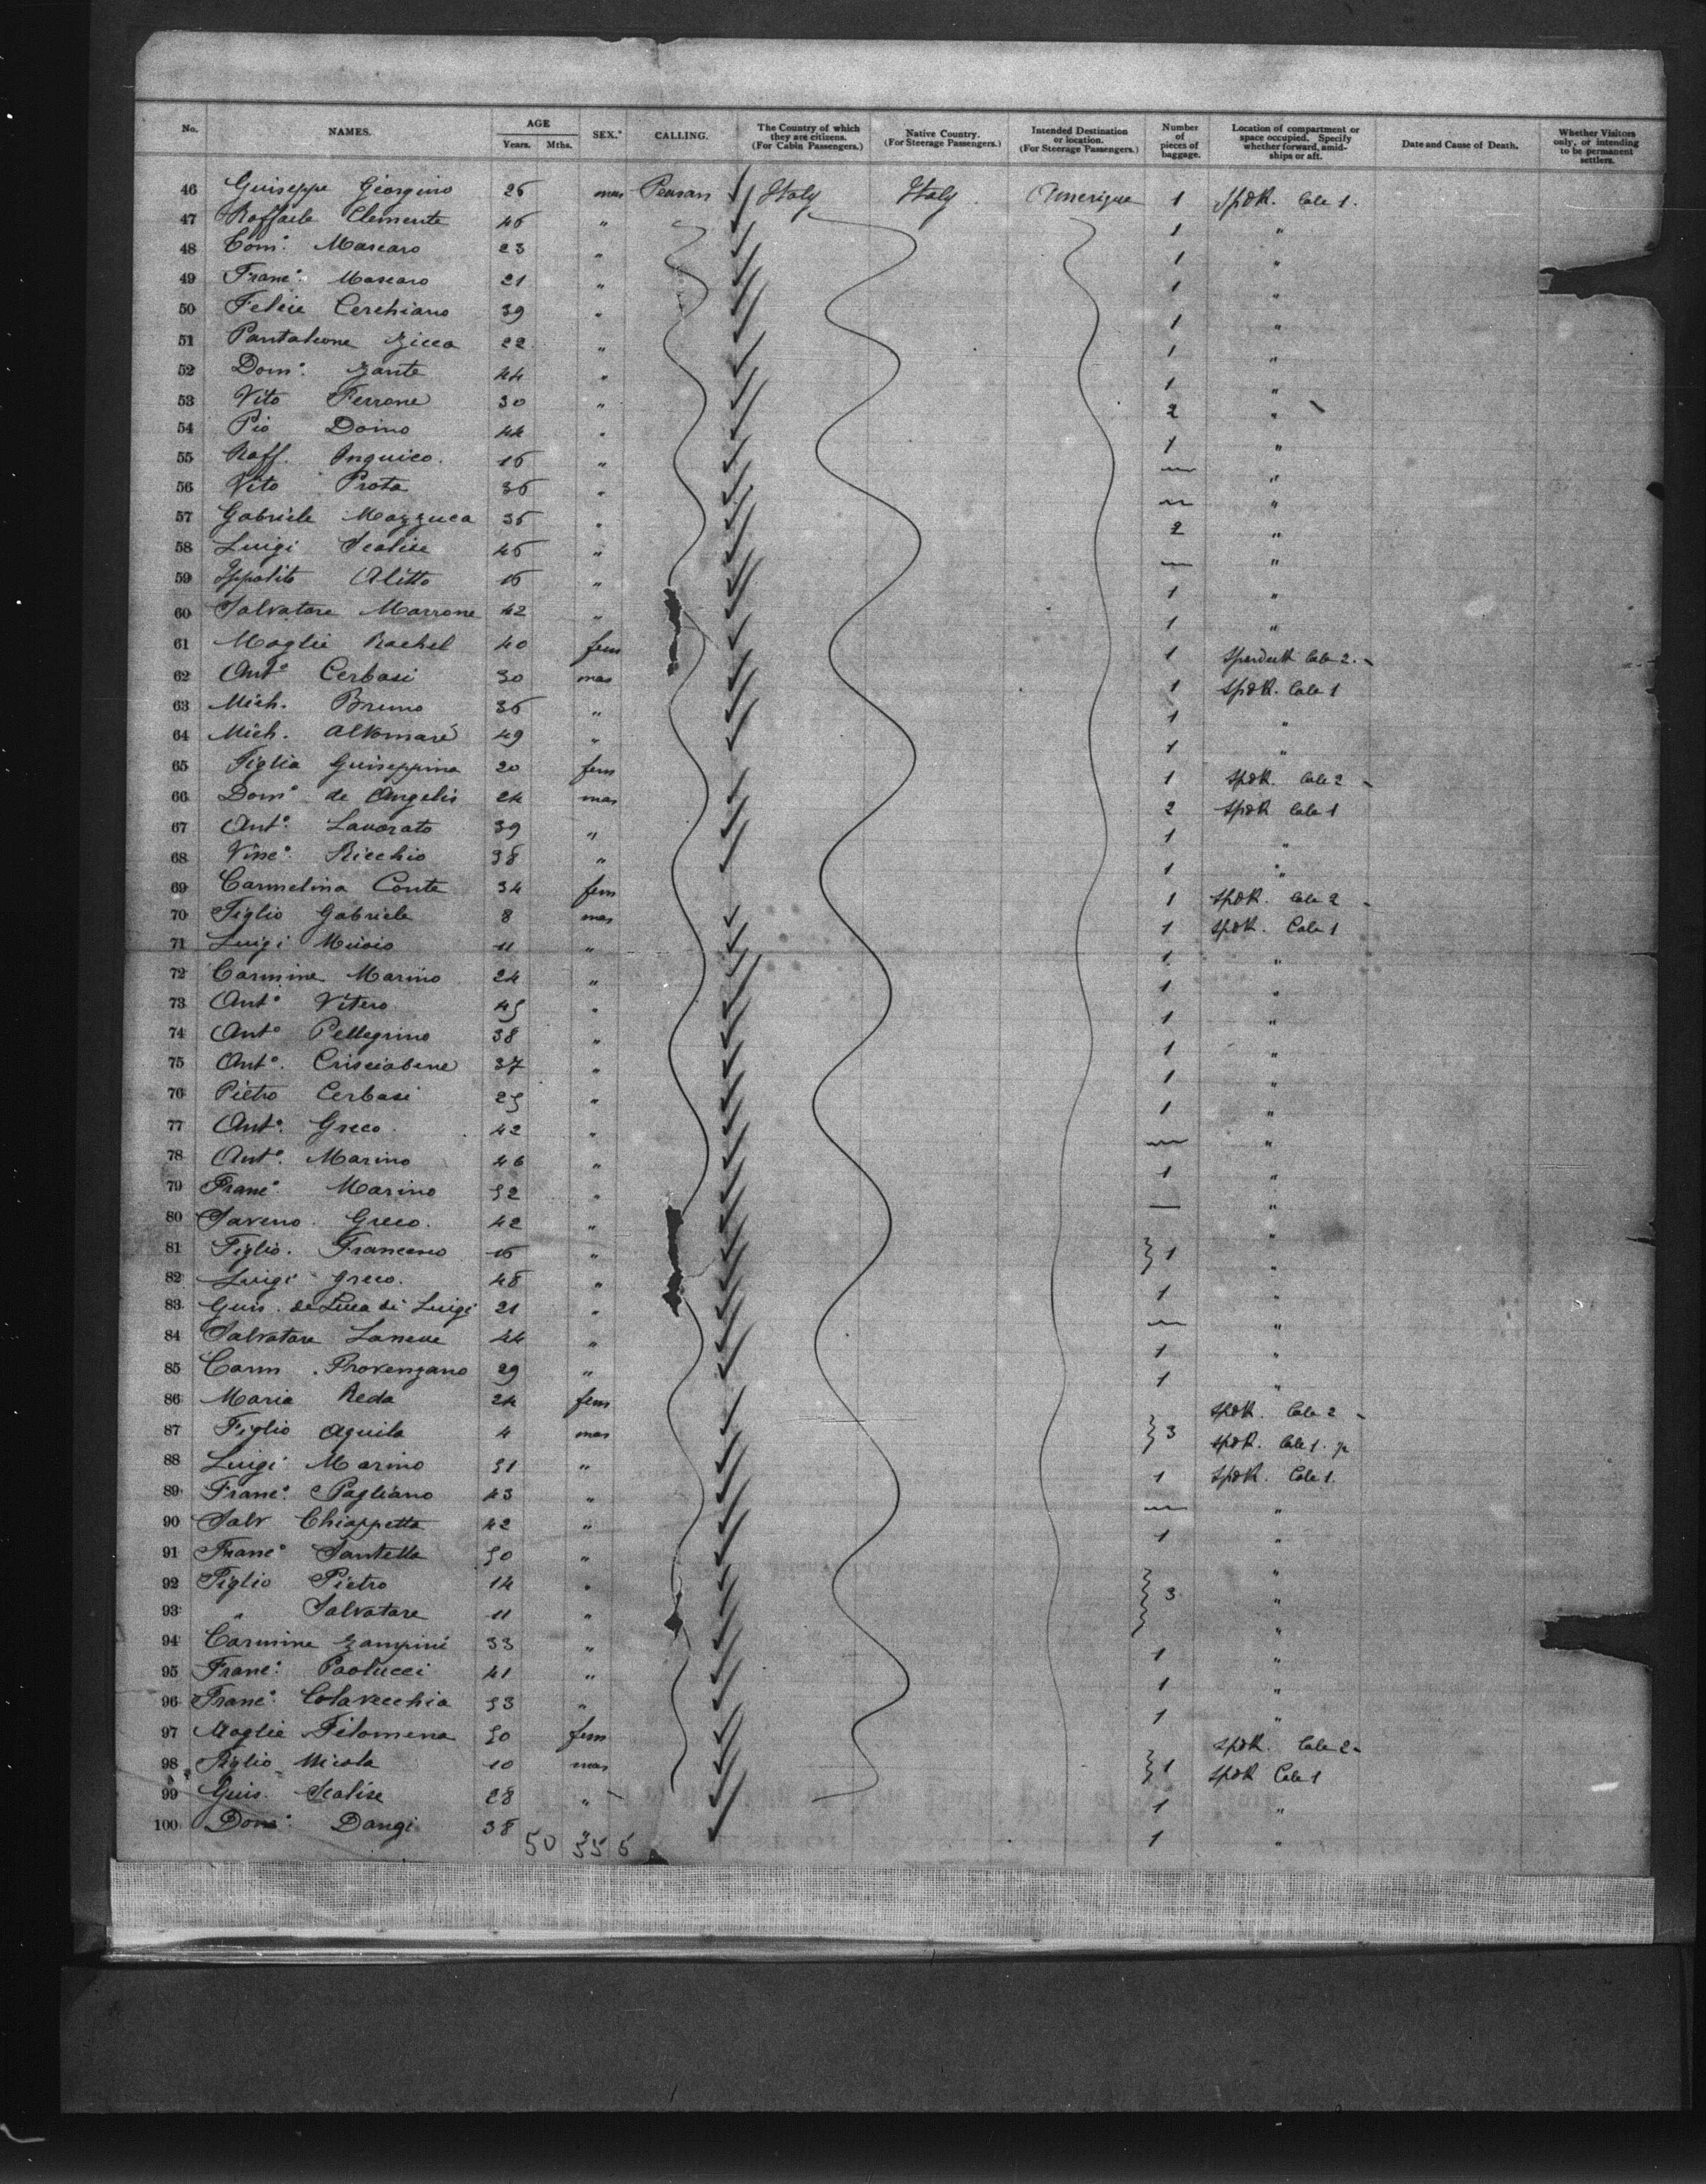 No. NAMES. AGE Years. Mths. SEX.* CALLING. The Country of which they are citizens. (For Cabin Passengers.) Native Country. (For Steerage Passengers.) Intended Destination or location. (For Steerage Passengers.) Number of pieces of baggage. Location of compartment or space occupied. Specify whether forward, amidships or aft. Date and Cause of Death. Whether Visitors only, or intending to be permanent settlers.
46 Guiseppe Giorgino 26 mas Peasan Italy Italy Amerique 1 Spdk. Cale 1.
47 Raffaele Clemente 46 " 1 "
48 Dom°. Mascaro 23 " 1 "
49 Franc°. Mascaro 21 " 1 "
50 Felice Cerchiano 39 " 1 "
51 Pantaleone Zicca 22 " 1 "
52 Dom°. Zante 44 " 1 "
53 Vito Ferrone 30 " 2 "
54 Pio Doino 44 " 1 "
55 Raff. 16 " — "
56 Vito Prota 36 " — "
57 Gabriele Mazzuca 36 " 2 "
58 Luigi Scalise 46 " — "
59 Ippolito Alitto 16 " 1 "
60 Salvatore Marrone 42 " 1 "
61 Moglie Rachel 40 fem 1 Spardeck Cale 2. -
62 Ant° Cerbasi 30 mas 1 Spdk. Cale 1
63 Mich. Bruno 36 " 1 "
64 Mich. Altomare 49 " 1 "
65 Figlia Guiseppina 20 fem 1 Spdk. Cale 2 -
66 Dom° de Angelis 24 mas 2 Spdk Cale 1
67 Ant°. Lavorato 39 " 1 "
68 Vinc°. Ricchio 38 " 1 "
69 Carmelina Conte 34 fem 1 Spdk. Cale 2 -
70 Figlio Gabriele 8 mas 1 Spdk. Cale 1
71 Luigi 11 " 1 "
72 Carmine Marino 24 " 1 "
73 Ant° Vitero 45 " 1 "
74 Ant° Pellegrino 38 " 1 "
75 Ant°. Crisciabene 37 " 1 "
76 Pietro Cerbasi 25 " 1 "
77 Ant°. Greco 42 " — "
78 Ant°. Marino 46 " 1 "
79 Franc°. Marino 32 " — "
80 Saveno Greco. 42 " "
81 Figlio. Francesco 16 " } 1 "
82 Luigi Greco. 48 " 1 "
83 Guis. de Luca di Luigi 21 " — "
84 Salvatore Laneve 44 " 1 "
85 Carm. Provenzano 29 " 1 "
86 Maria Reda 24 fem Spdk. Cale 2 -
87 Figlio Aquila 4 mas } 3 Spdk. Cale 1.
88 Luigi Marino 31 " 1 Spdk. Cale 1.
89 Franc°. Pagliano 43 " — "
90 Salv Chiappetta 42 " 1 "
91 Franc° Santella 50 " "
92 Figlio Pietro 14 " } 3 "
93 " Salvatore 11 " "
94 Carmine Zampini 33 " 1 "
95 Franc°. Paolucci 41 " 1 "
96 Franc°. Colavecchia 53 " 1 "
97 Moglie Filomena 50 fem Spdk. Cale 2-
98 Figlio Nicola 10 mas } 1 Spdk Cale 1
99 Guis. Scalise 28 " 1 "
100 Dom°. Dangi 38 " 1 "
50 55 5